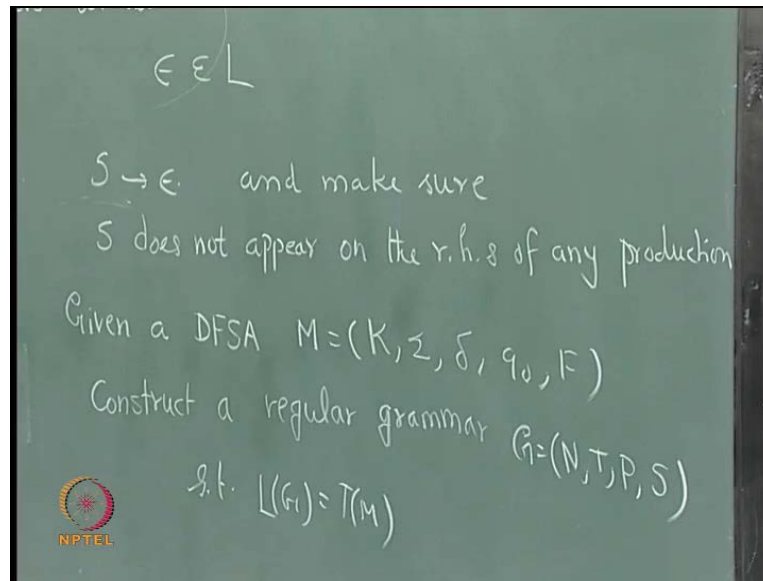 ϵ ε L
S → ϵ. and make sure
S does not appear on the r.h.s of any production
Given a DFSA M=(K, Σ, δ, q₀, F)
Construct a regular grammar G=(N,T,P,S)
s.t. L(G)=T(M)
NPTEL